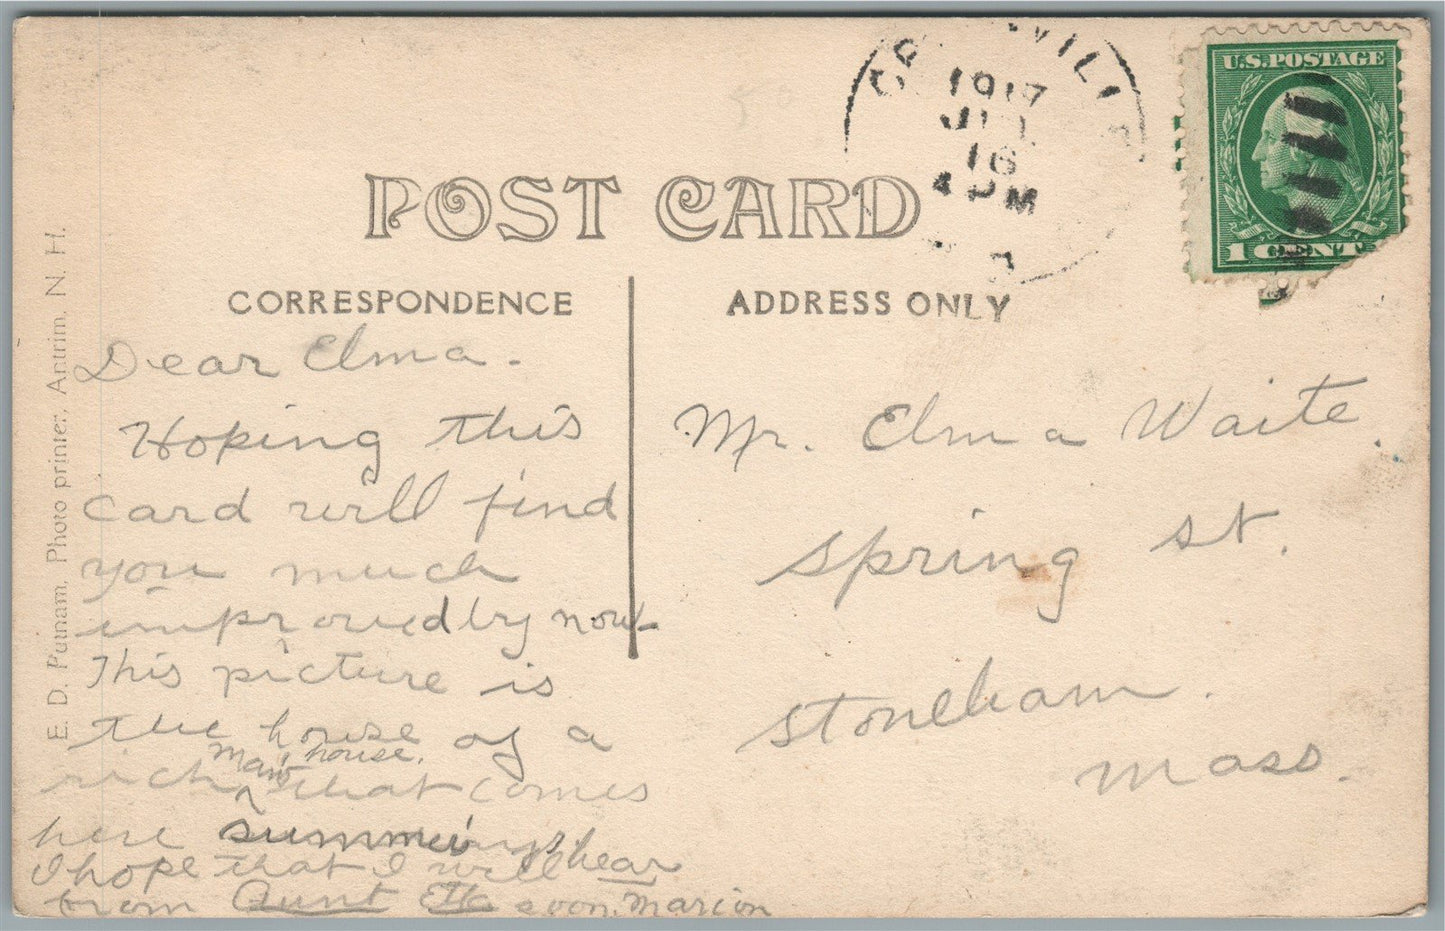 1917
16
4 PM
U.S.POSTAGE
1 CENT
POST CARD
CORRESPONDENCE
ADDRESS ONLY
E. D. Putnam, Photo printer, Antrim, N. H.
Dear Elma.
Hoping this
card will find
you much
improved by now
This picture is
the house of a
man's house.
rich ^ that comes
here
I hope that I will hear
from Aunt soon. Marion
Mr. Elma Waite.
Spring St.
Stoneham.
Mass.